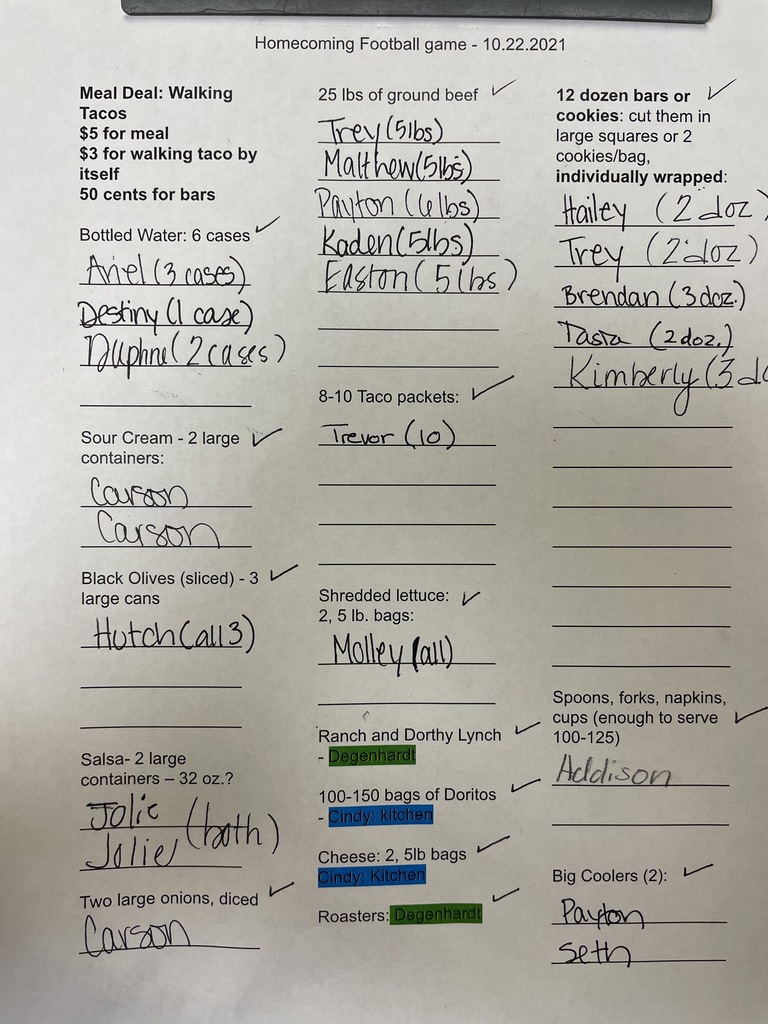 Homecoming Football game - 10.22.2021
Meal Deal: Walking
Tacos
$5 for meal
$3 for walking taco by
itself
50 cents for bars
Bottled Water: 6 cases
Ariel (3 cases)
Destiny (1 case)
Daphne (2 cases)
Sour Cream - 2 large
containers:
Carson
Carson
Black Olives (sliced) - 3
large cans
Hutch (all 3)
Salsa- 2 large
containers – 32 oz.?
Jolie
Jolie (both)
Two large onions, diced
Carson
25 lbs of ground beef
Trey (5lbs)
Matthew (5lbs)
Payton (6lbs)
Kaden (5lbs)
Easton (5lbs)
8-10 Taco packets:
Trevor (10)
Shredded lettuce:
2, 5 lb. bags:
Molley (all)
Ranch and Dorthy Lynch
- Degenhardt
100-150 bags of Doritos
- Cindy: kitchen
Cheese: 2, 5lb bags
Cindy: Kitchen
Roasters: Degenhardt
12 dozen bars or
cookies: cut them in
large squares or 2
cookies/bag,
individually wrapped:
Hailey (2 doz)
Trey (2 doz)
Brendan (3 doz.)
Tasia (2 doz.)
Kimberly (3 do
Spoons, forks, napkins,
cups (enough to serve
100-125)
Addison
Big Coolers (2):
Payton
Seth